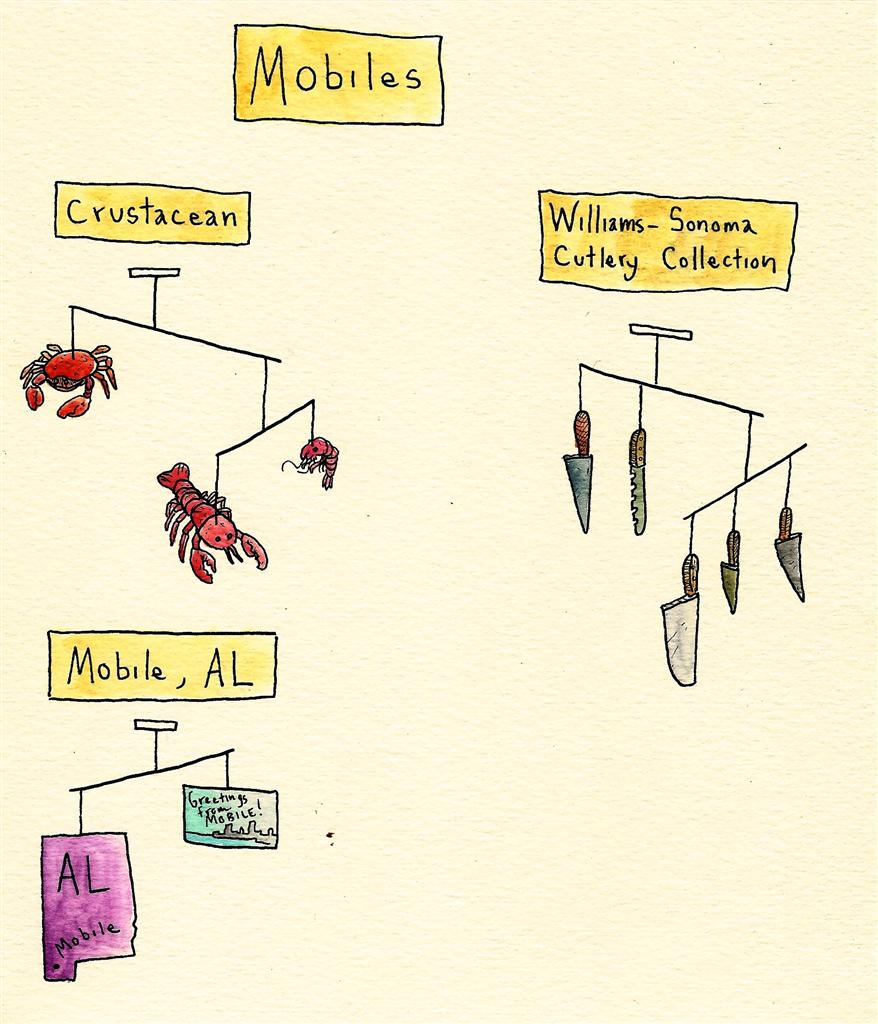 Mobiles
Crustacean
Williams-Sonoma
Cutlery Collection
Mobile, AL
Greetings
from
MOBILE!
AL
Mobile